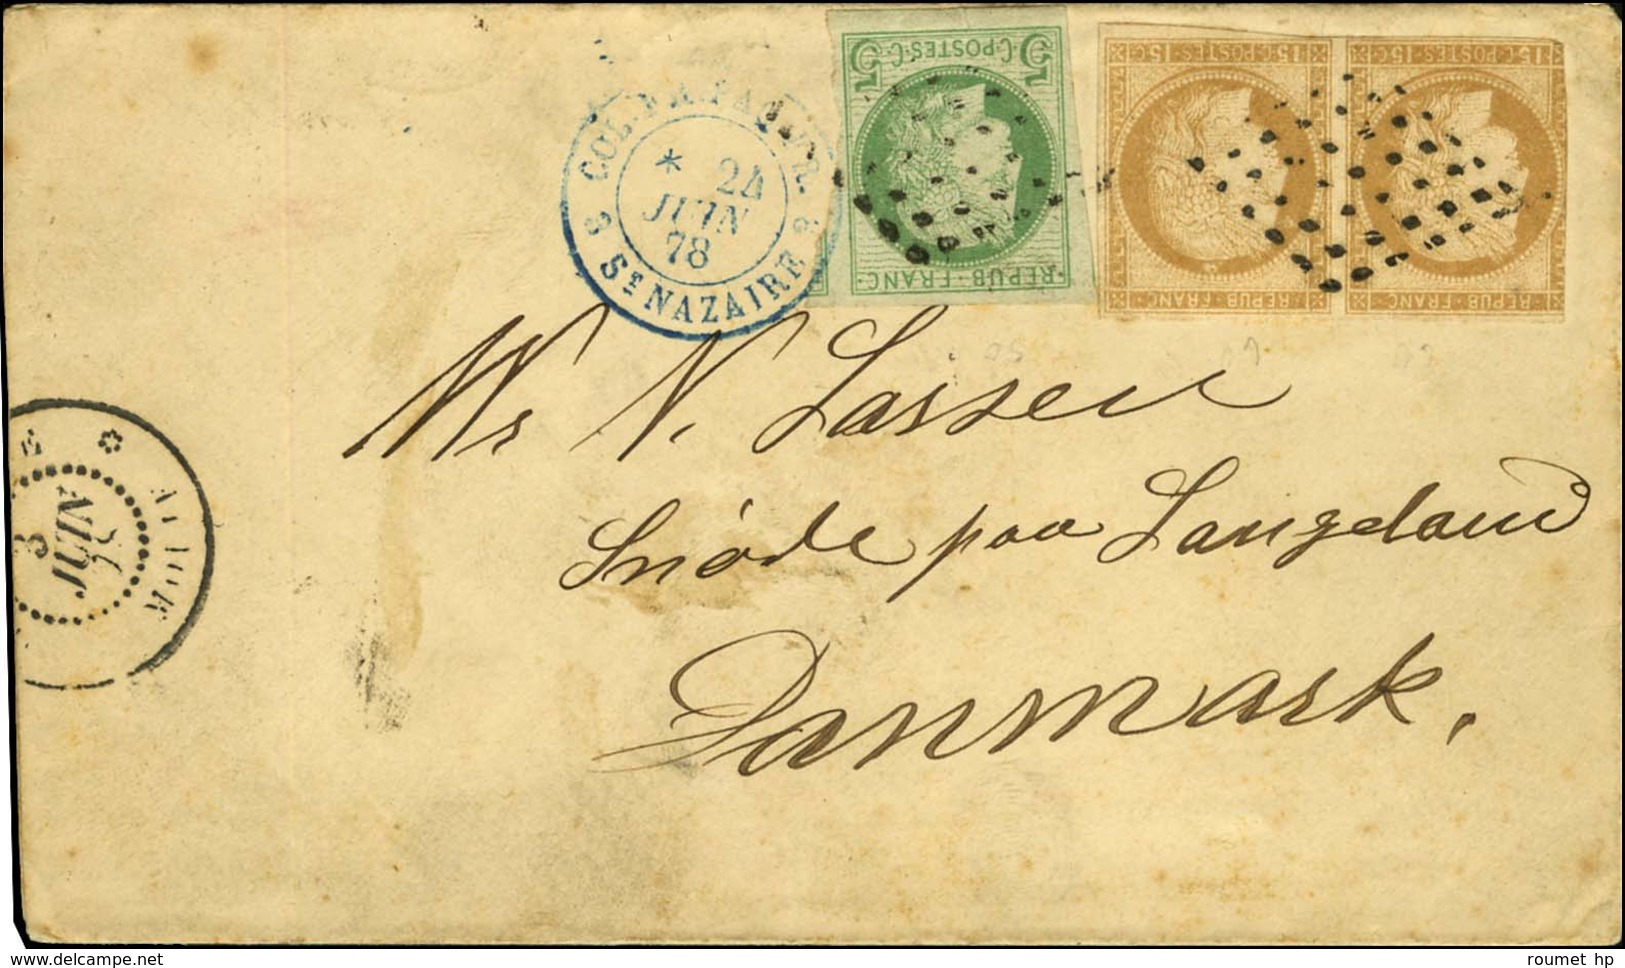 COL. FR. PAQ. FR.
* 24
JUIN
78
3 ST NAZAIRE 3
5 C. POSTES. C. 5
REPUB. FRANC.
15 C. POSTES. 15 C.
REPUB. FRANC.
15 C. POSTES. 15 C.
REPUB. FRANC.
Mr N. Lassen
Snöde paa Langeland
Danmark.
3
JUIN
www.delcampe.net
roumet hp